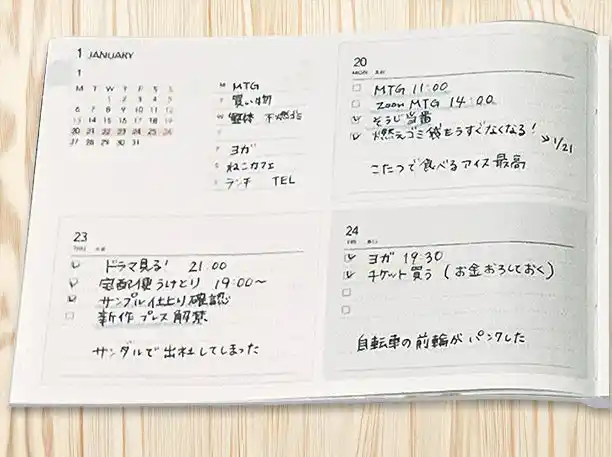 1 JANUARY
1
M T W T F S S
1 2 3 4 5
6 7 8 9 10 11 12
13 14 15 16 17 18 19
20 21 22 23 24 25 26
27 28 29 30 31
M MTG
T 買い物
W 整体 不燃ゴミ
T
F ヨガ
S ねこカフェ
S ランチ TEL
20
MON
MTG 11:00
Zoom MTG 14:00
そうじ当番
燃えゴミ袋もうすぐなくなる!
→1/21
こたつで食べるアイス最高
23
THU
ドラマ見る! 21:00
宅配便うけとり 19:00〜
サンプル仕上り確認
新作プレス解禁
サンダルで出社してしまった
24
FRI
ヨガ 19:30
チケット買う (お金おろしておく)
自転車の前輪がパンクした